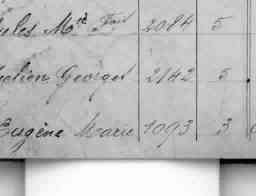 ules Md Fois 2084 5
ulien Georges 2142 5
Eugène Marie 1093 3